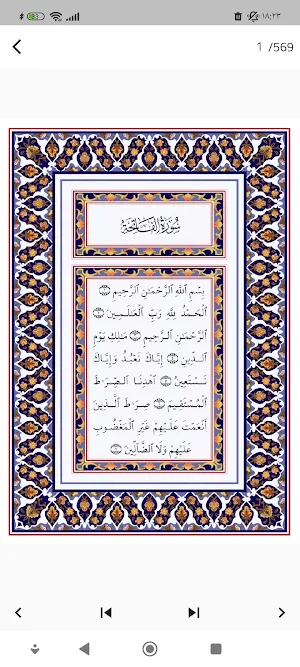 ۱۸:۲۳
1 /569
سُورَةُ الفَاتِحَةِ
بِسْمِ ٱللَّهِ ٱلرَّحْمَٰنِ ٱلرَّحِيمِ ۝
ٱلْحَمْدُ لِلَّهِ رَبِّ ٱلْعَٰلَمِينَ ۝
ٱلرَّحْمَٰنِ ٱلرَّحِيمِ ۝ مَٰلِكِ يَوْمِ
ٱلدِّينِ ۝ إِيَّاكَ نَعْبُدُ وَإِيَّاكَ
نَسْتَعِينُ ۝ ٱهْدِنَا ٱلصِّرَٰطَ
ٱلْمُسْتَقِيمَ ۝ صِرَٰطَ ٱلَّذِينَ
أَنْعَمْتَ عَلَيْهِمْ غَيْرِ ٱلْمَغْضُوبِ
عَلَيْهِمْ وَلَا ٱلضَّآلِّينَ ۝